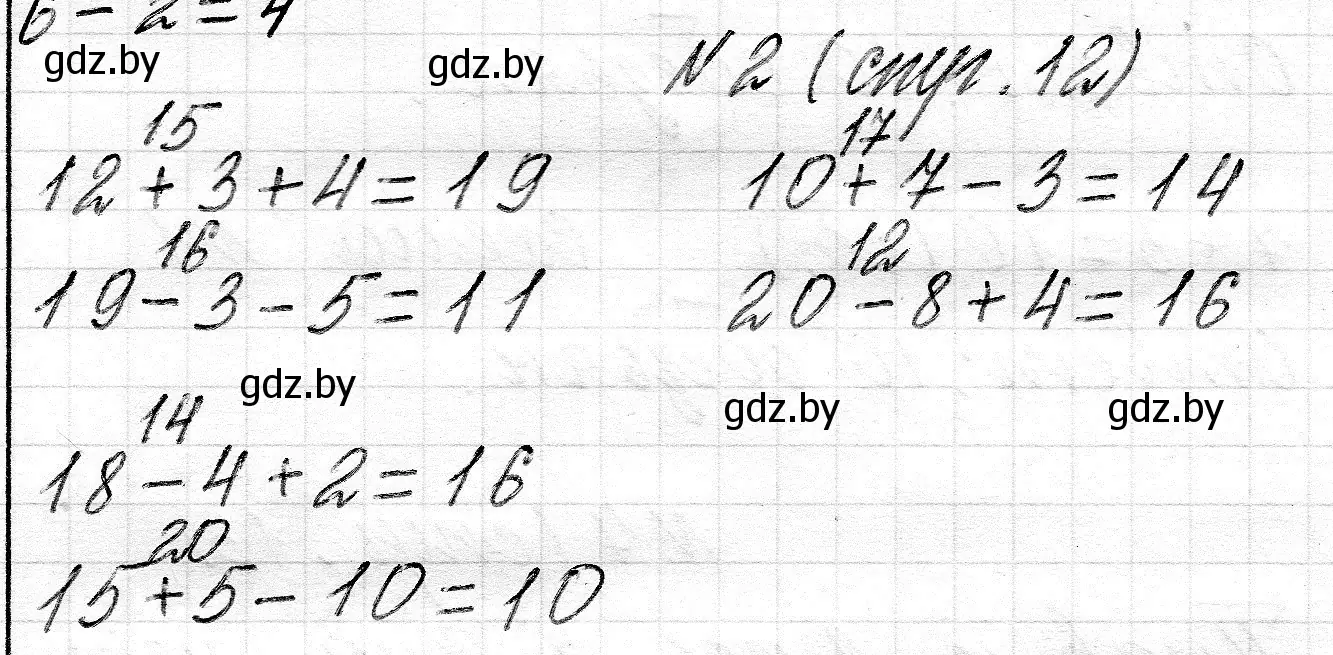 6 - 2 = 4
gdz.by gdz.by № 2 (стр. 12)
15 17
12 + 3 + 4 = 19 10 + 7 - 3 = 14
16 12
19 - 3 - 5 = 11 20 - 8 + 4 = 16
gdz.by gdz.by gdz.by
14
18 - 4 + 2 = 16
20
15 + 5 - 10 = 10